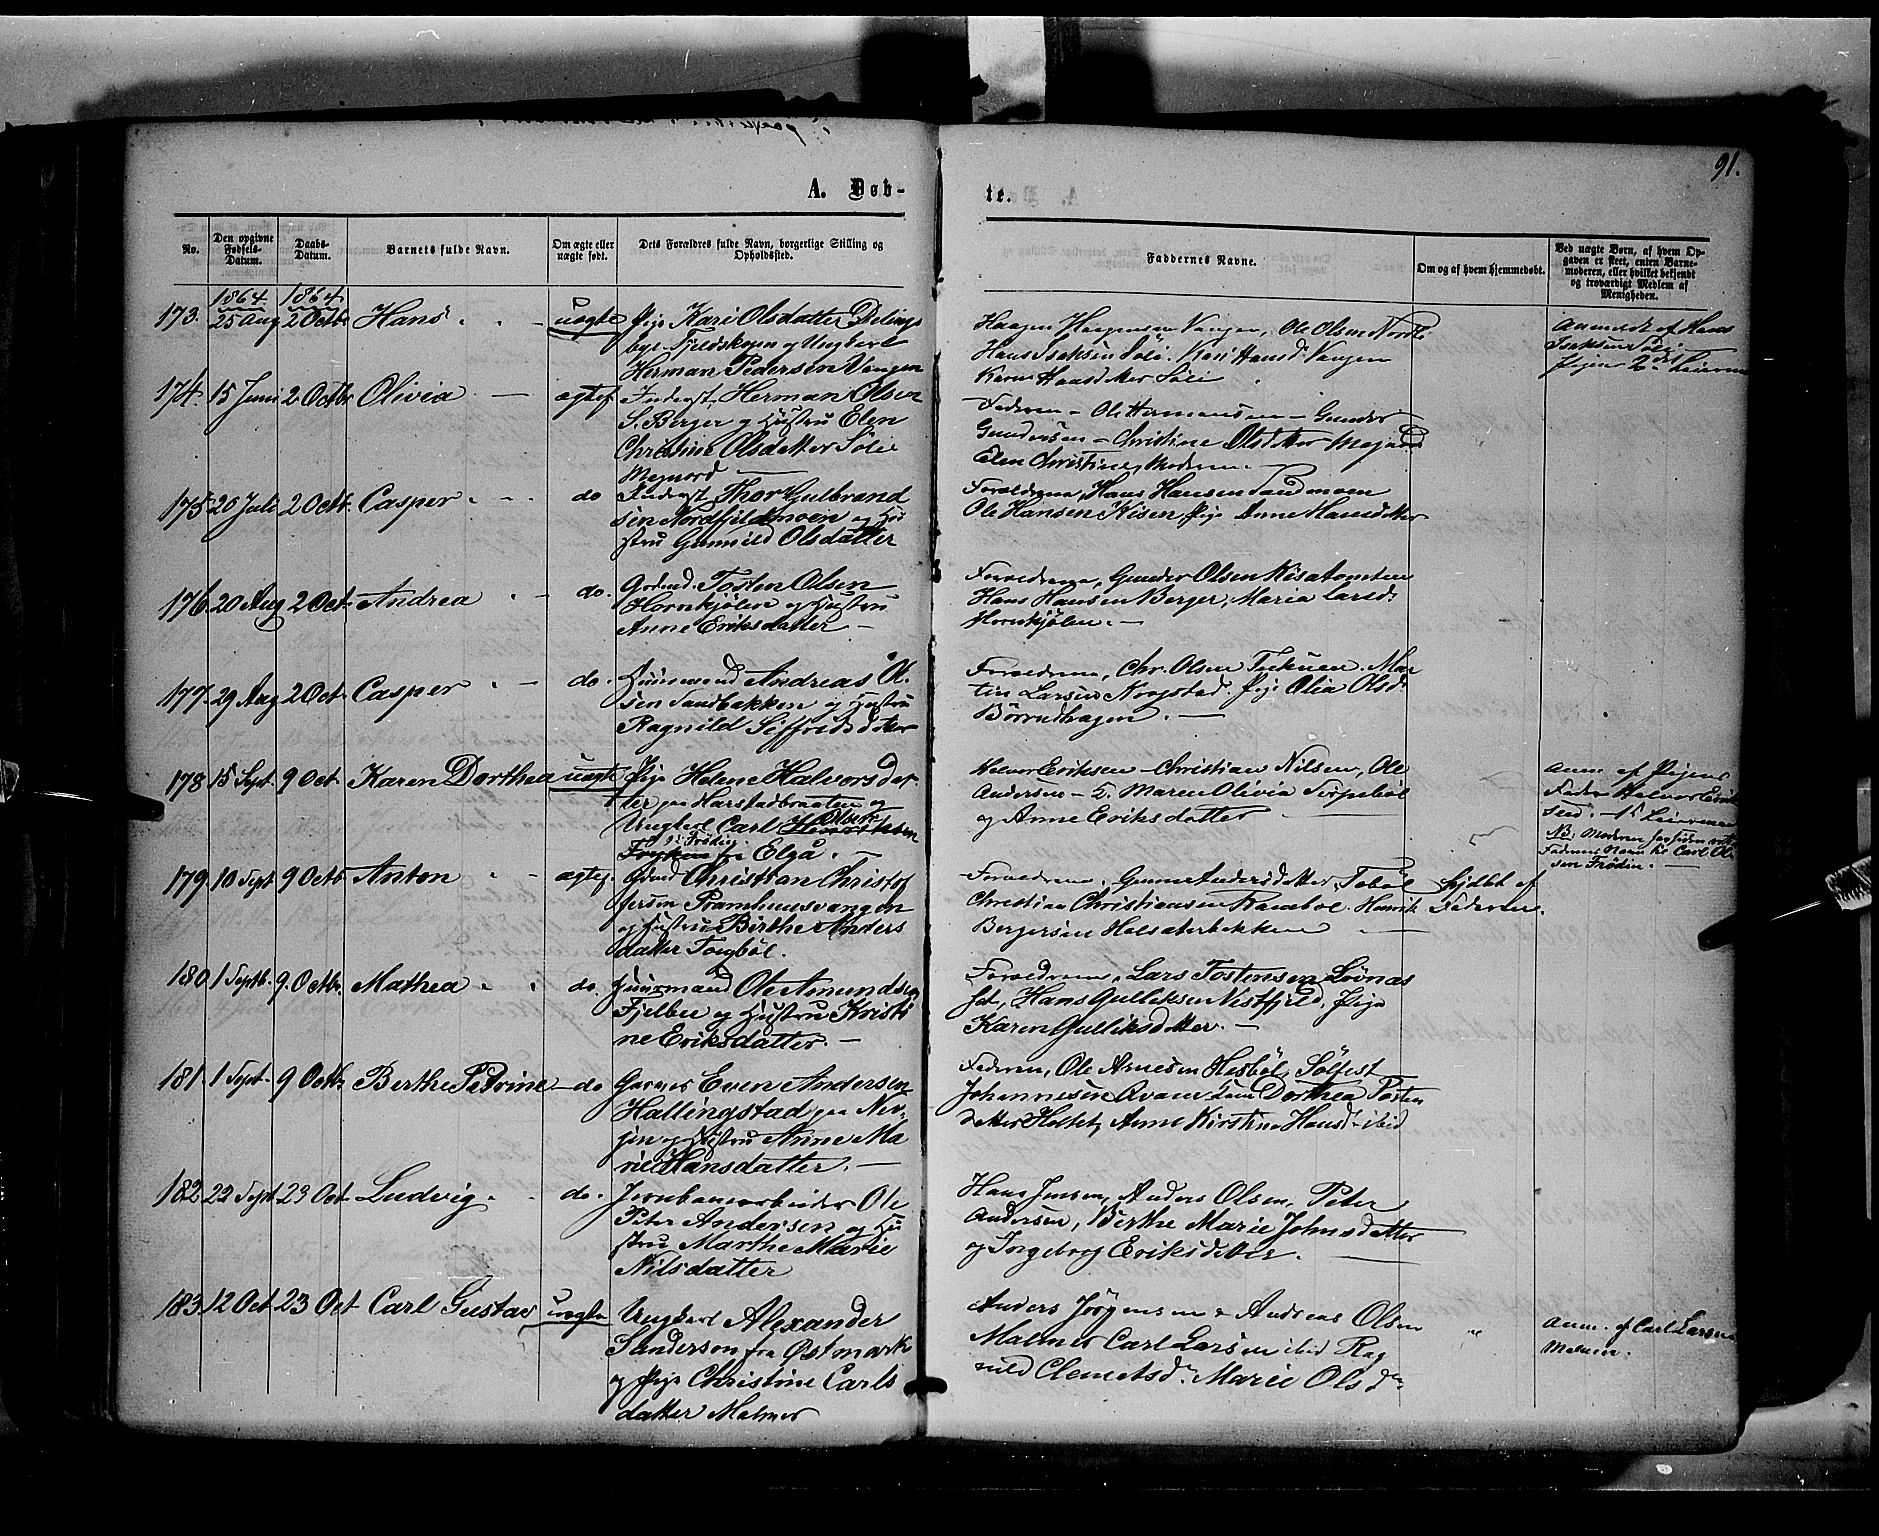 91.
A. Døb-
te.
No.
Den opgivne Fødsels-Datum.
Daabs-Datum.
Barnets fulde Navn.
Om ægte eller uægte født.
Dets Forældres fulde Navn, borgerlige Stilling og Opholdssted.
Faddernes Navne.
Om og af hvem hjemmedøbt.
Ved uægte Børn, af hvem Opgaven er skeet, enten Barnemoderen, eller hvilket bekjendt og troværdigt Medlem af Menigheden.
1864. 1864.
173. 25 Aug 2 Octbr Hans uægte Pige Kari Olsdatter
og Ungkarl
Herman Pedersen Vangen
Haagen Haagensen Vangen, Ole Olsen
Hans Isaksen Söli. Kari Hansd. Vangen
Karen Hansdtter Söli
Anmeldt af Hans
Isaksen Söli
174. 15 Juni 2 Octbr Olivia ægtef. Inderst Herman Olsen
S. Berger og Hustru Elen
Christine Olsdatter Sölie
Faderen - Ole Hermansen - Gunder
Gundersen - Christine Olsdtter
Elen Christine, Moderen -
175 20 Juli 2 Octb. Casper do Inderst Thor Gulbrand
sen Nordfjeldmoen og Hu
stru Gunnild Olsdatter
Forældrene, Hans Hansen Sandmoen
Ole Hansen Kisen Pige Anne Hansdatter
176. 20 Aug 2 Oct. Andrea do. Grdmd. Tosten Olsen
Hornkjölen og Hustru
Anne Eriksdatter -
Forældrene, Gunder Olsen Kisatomten
Hans Hansen Berger, Maria Larsd:
Hornkjölen. -
177. 29 Aug 2 Oct. Casper do. Huusmand Andreas Ol
sen Sandbakken og Hustru
Ragnild Siffridsdtter
Forældrene, Chr. Olsen Mar
tin Larsen Nogstad. Pige Olia Olsd:
Börrudhagen. -
178 15 Sept. 9 Oct. Karen Dorthea uægte Pige Helene Halvorsdat
ter paa Harstadbraaten og
Ungkarl Carl Olsen
fra Elgå. -
Halvor Eriksen - Christian Nilsen, Ole
Andersen - Maren Olivia Torpeböl
og Anne Eriksdatter -
Anm. af Pigens
Fader Halvor Erik
sen. -
179. 10 Sept 9 Octb Anton ægtef. Grdmd Christian Christof
fersen
og Hustru Birthe Anders
datter
Forældrene,
Christian Christiansen Henrik
Bergersen
hjdbt af
Faderen.
180. 1 Septb. 9 Octbr. Mathea do. Huusmand Ole Amundsen
Fjelbu og Hustru Kristi
ne Eriksdatter. -
Forældrene, Lars Tostensen Lövnas
set, Hans Gulliksen Nestfjeld, Pige
Karen Gulliksdtter. -
181. 1 Sept. 9 Octbr Berthe Petrine - do Even Andersen
Hallingstad paa
og Hustru Anne Ma
rie Hansdatter. -
Faderen, Ole Arnesen Hesböl, Sölfest
Johannesen Dorthea Tosten
datter Holtet, Anne Kirstine Hansd: ibid
182 22 Sept. 23 Oct. Ludvig. do. Jernbanearbeider Ole
Peter Andersen og Hu
stru Marthe Marie
Nilsdatter
Hans Jensen, Anders Olsen, Peter
Andersen, Berthe Marie Johnsdatter
og Ingeborg Eriksdtter.
183. 12 Oct. 23 Oct. Carl Gustav uægte Ungkarl Alexander
Sanderson fra Östmark
og Pige Christine Carls
datter Malmer
Anders Jörgensen & Andreas Olsen
Malmer Carl Larsen ibid Rag
nild Clemetsd: Marie Olsdr
Anm. af Carl Larsen
Malmer.